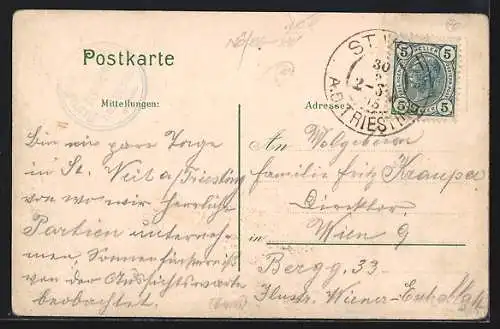 Postkarte
Mitteilungen:
Adresse:
ST. V
30
2-3
A.D. TRIESTING
5 5
5 5
Bin wie paar Tage
in St. Veit a/Triesting
von wo wir herrliche
Partien unterneh-
men, Sonnenfinsterniß
von der Aussichtswarte
beobachtet.
An Wolgeboren
Familie Fritz Kraupa
Direktor
in Wien 9
Bergg. 33
Illustr. Wiener